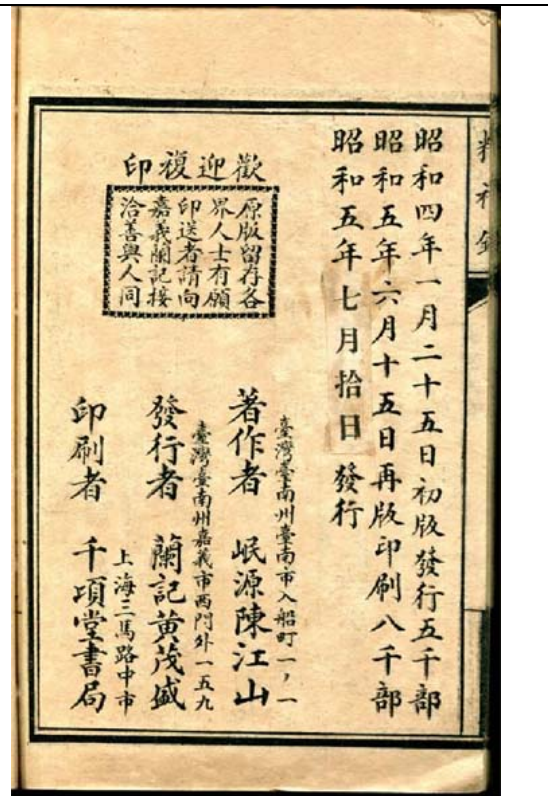 精神錄
昭和四年一月二十五日初版發行五千部
昭和五年六月十五日再版印刷八千部
昭和五年七月拾日發行
歡迎複印
原版留存各
界人士有願
印送者請向
嘉義蘭記接
洽善與人同
臺灣臺南州臺南市入船町一ノ一
著作者 岷源陳江山
臺灣臺南州嘉義市西門外一五九
發行者 蘭記黃茂盛
上海三馬路中市
印刷者 千頃堂書局